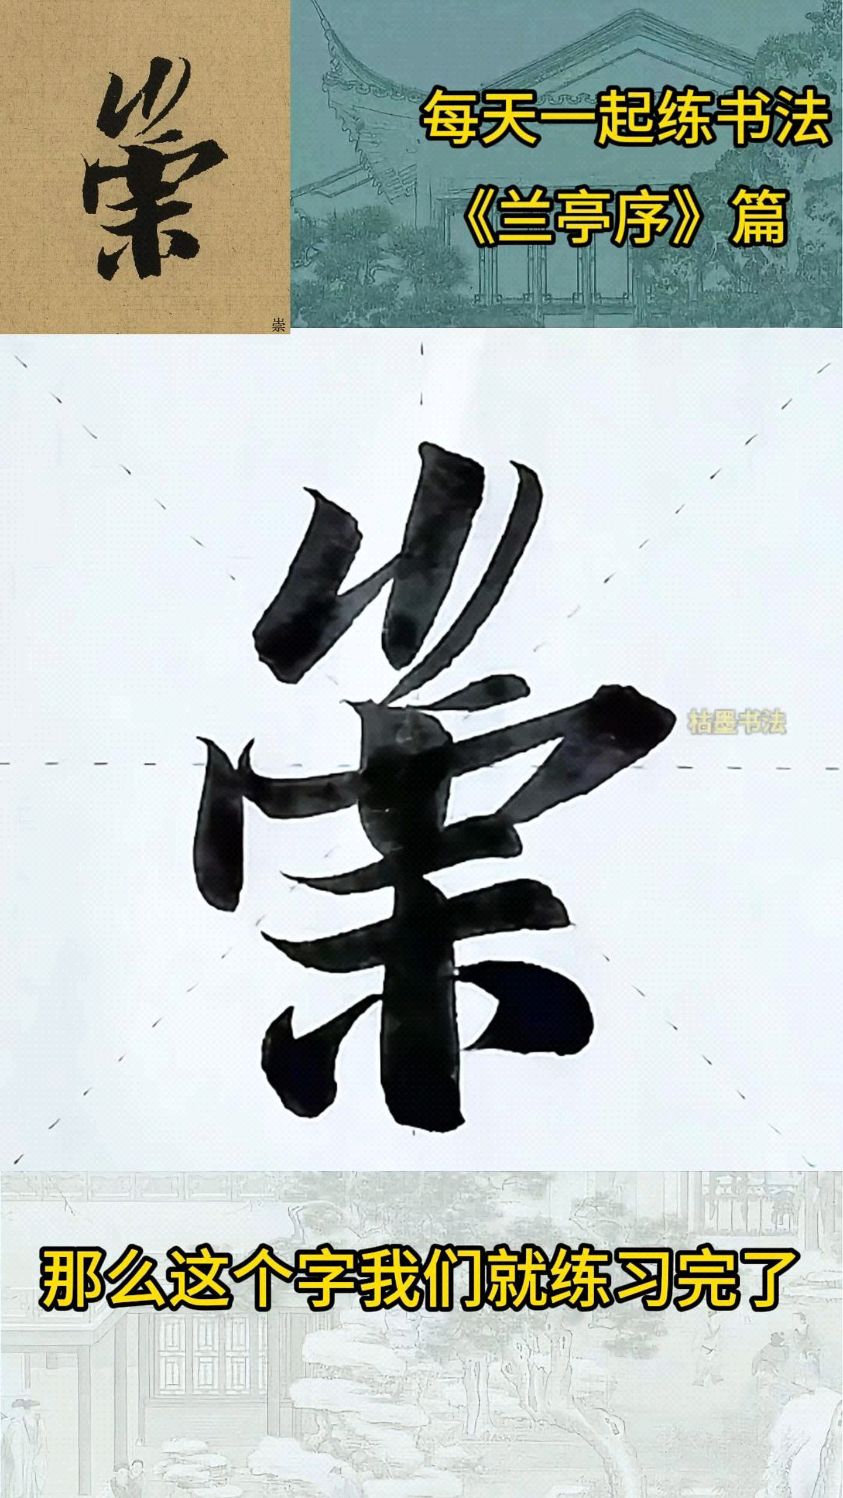 崇
每天一起练书法
《兰亭序》篇
崇
枯墨书法
那么这个字我们就练习完了